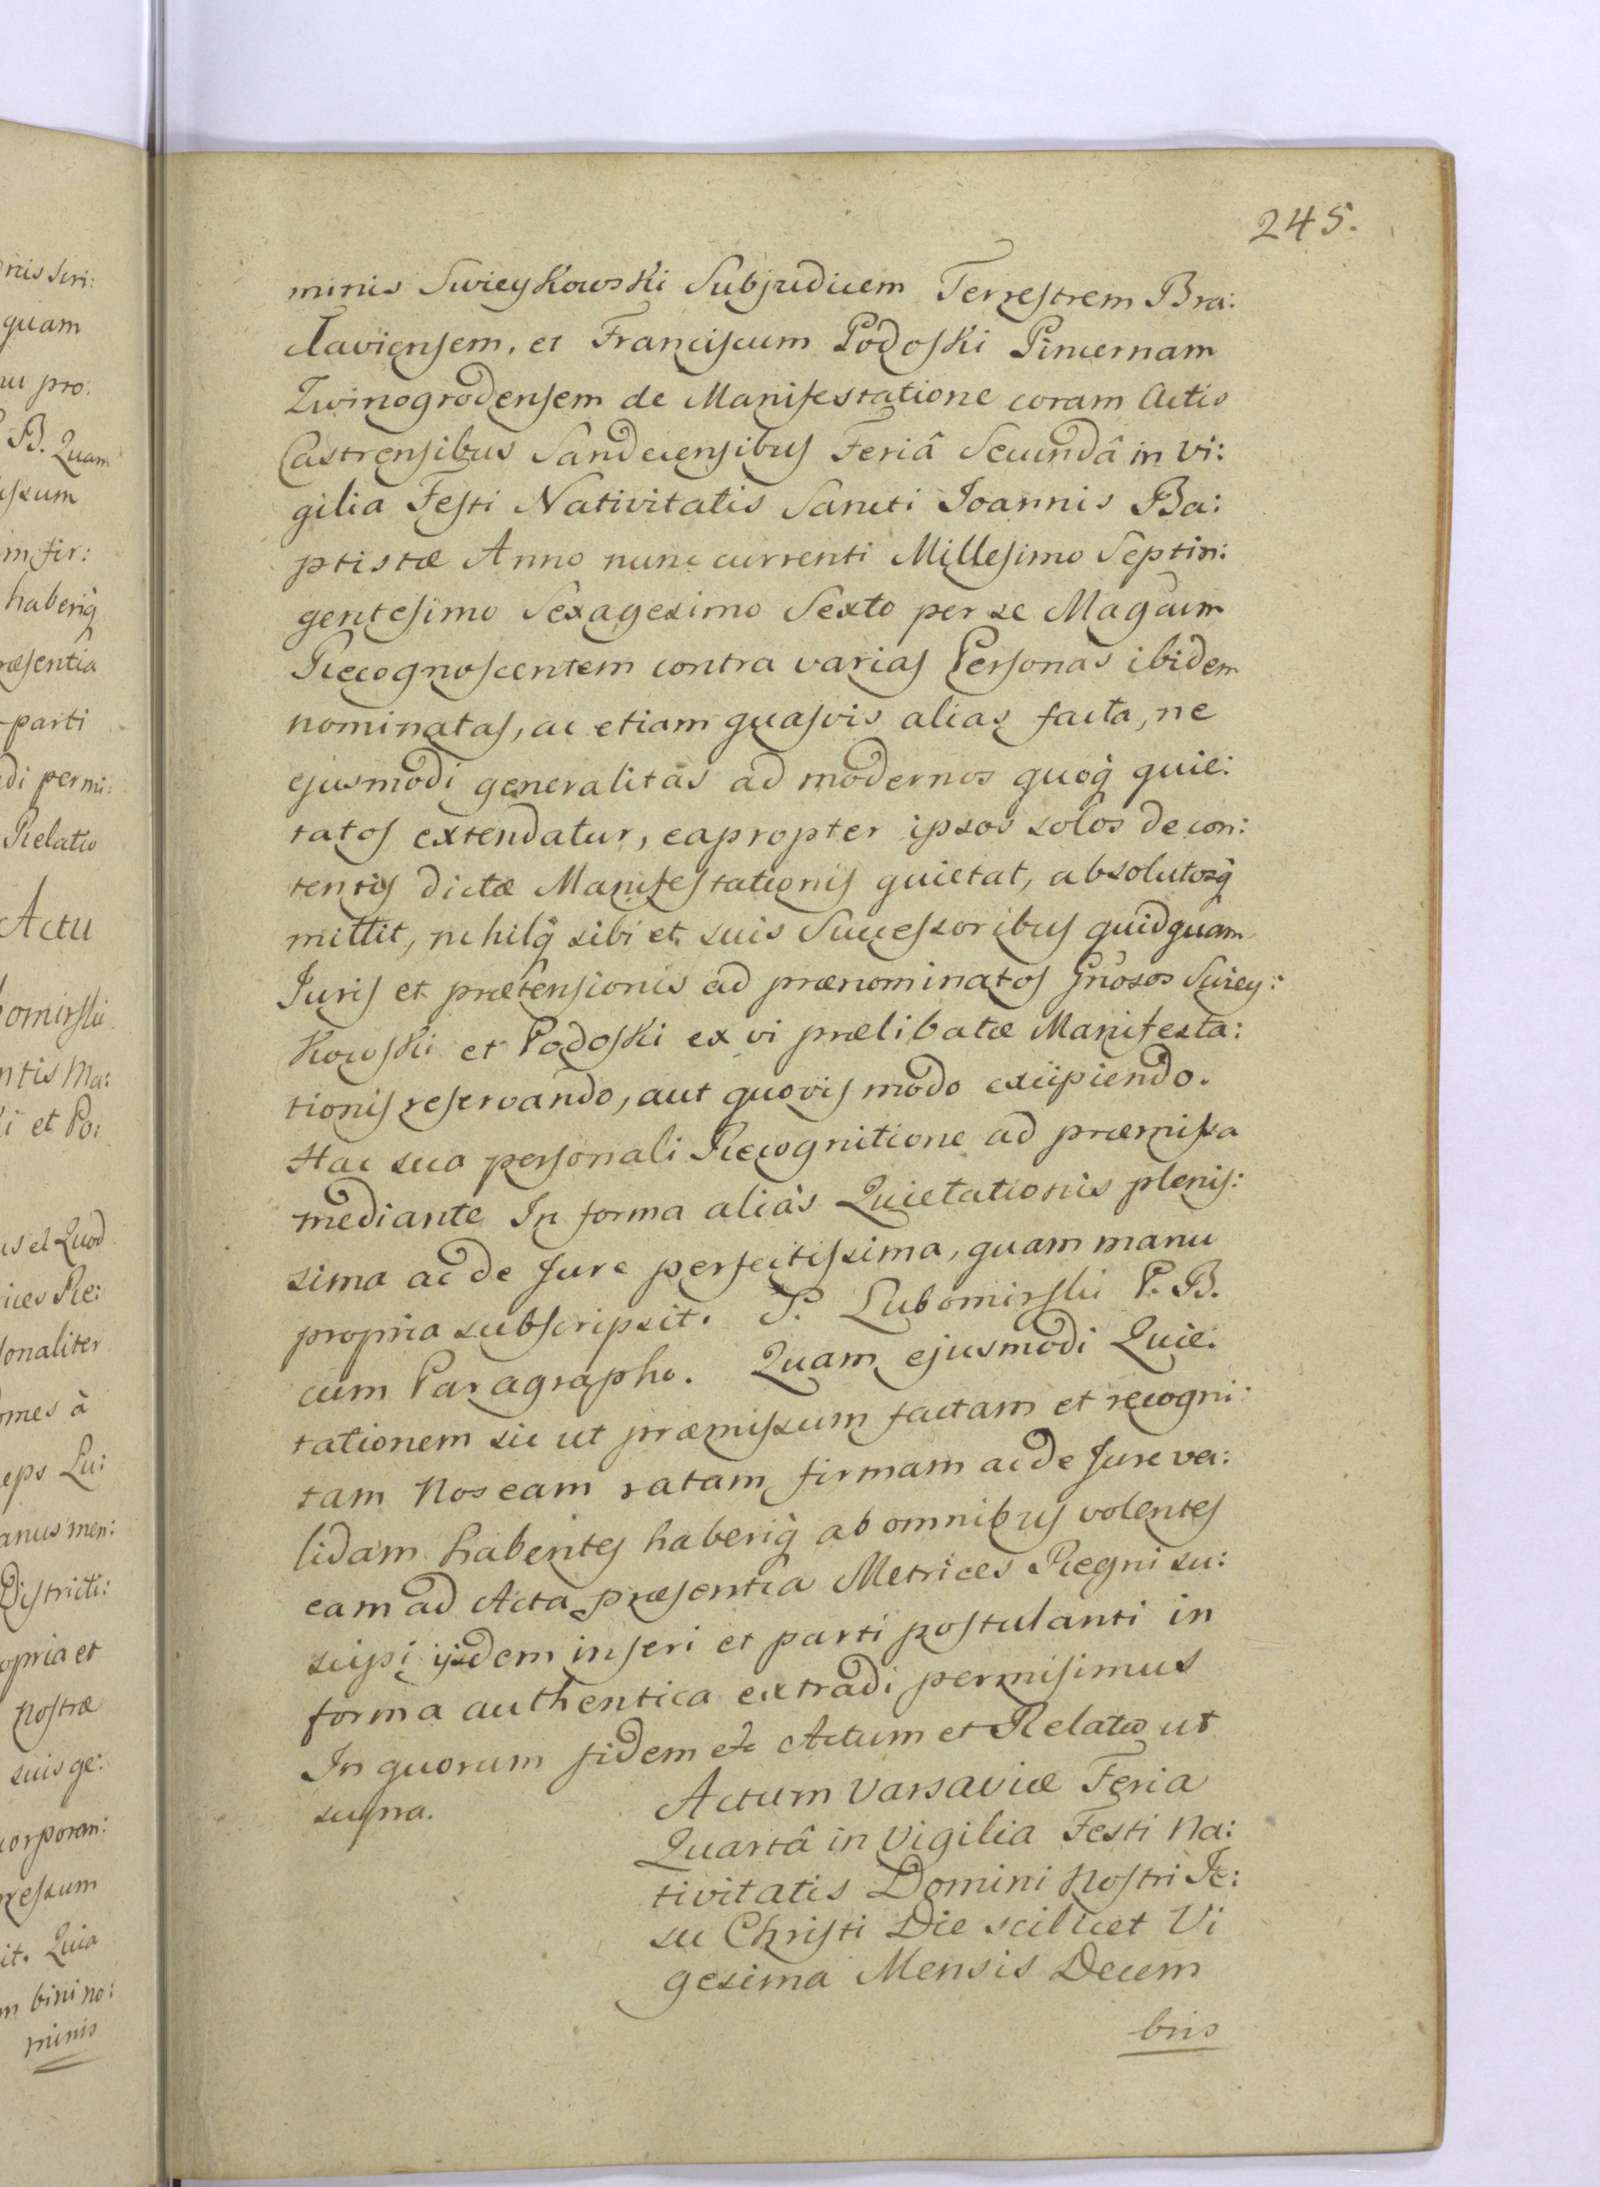 245.
minis Swieykowski Subjudicem Terrestrem Bra:
claviensem, et Franciscum Podoski Pincernam
Zwinogrodensem de Manifestatione coram Actis
Castrensibus Sandecensibus Feriâ Secundâ in Vi:
gilia Festi Nativitatis Sancti Joannis Ba:
ptistæ Anno nunc currenti Millesimo Septin:
gentesimo Sexagesimo Sexto per se Magcum
Recognoscentem contra varias Personas ibidem
nominatas, ac etiam quasvis alias facta, ne
ejusmodi generalitas ad modernos quoq quie:
tatos extendatur, eapropter ipsos solos de con:
tentis dictæ Manifestationis quietat, absolutosq
mittit, nihilq sibi et suis Successoribus quidquam
Juris et prætensionis ad prænominatos Gnosos Swiey:
kowski et Podoski ex vi prælibatæ Manifesta:
tionis reservando, aut quovis modo excipiendo.
Hac sua personali Recognitione ad præmissa
mediante In forma aliàs Quietationis plenis:
sima ac de Jure perfectissima, quam manu
propria subscripsit. S. Lubomirski P. B.
cum Paragrapho. Quam ejusmodi Quie:
tationem sic ut præmissum factam et recogni:
tam Nos eam ratam firmam ac de Jure va:
lidam habentes haberiq ab omnibus volentes
eam ad Acta præsentia Metrices Regni su:
scipi ijsdem inseri et parti postulanti in
forma authentica extradi permisimus
In quorum fidem etc Actum et Relatio ut
supra.
Actum Varsaviæ Feria
Quartâ in Vigilia Festi Na:
tivitatis Domini Nostri Je:
su Christi Die scilicet Vi
gesima Mensis Decem
bris
nis Scri:
quam
pro:
B. Quam
issum
m fir:
haberiq
ræsentia
parti
di permi:
Relatio
Actu
bomirski
ntis Ma:
i et Po:
us et Quod
rices Re:
sonaliter
omes à
ceps Lu:
anus men:
Districti:
opria et
nostræ
suis ge:
corporem:
ressum
it. Quia
m bini no:
minis